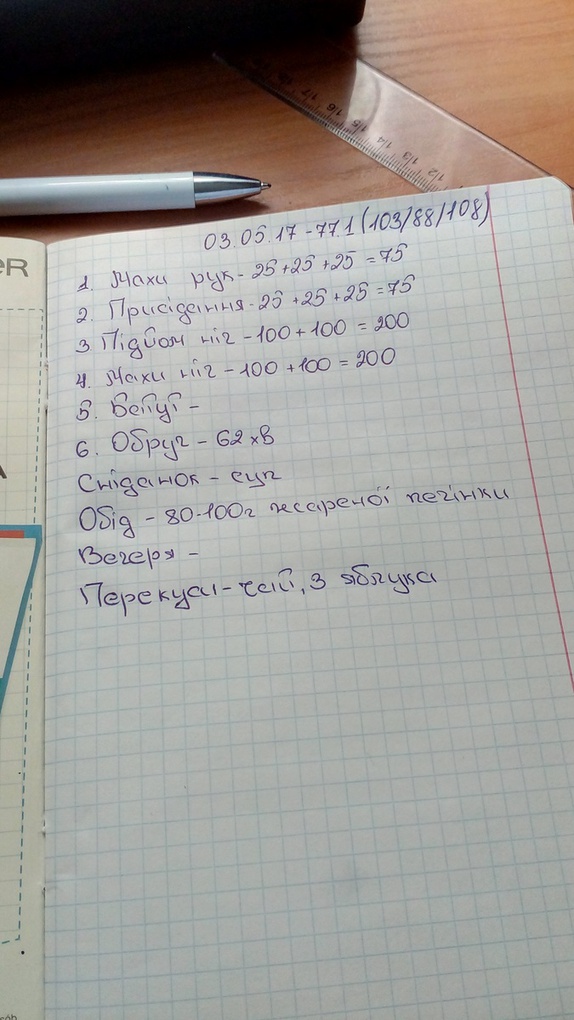 ER
03.05.17 - 77.1 (103/88/108)
1. Махи рук - 25 + 25 + 25 = 75
2. Присідання - 25 + 25 + 25 = 75
3 Підйом ніг - 100 + 100 = 200
4. Махи ніг - 100 + 100 = 200
5.
6. Обруч - 62 хв
Сніданок - суп
Обід - 80-100г жареної печінки
Вечеря -
Перекуси - чай, 3 яблука